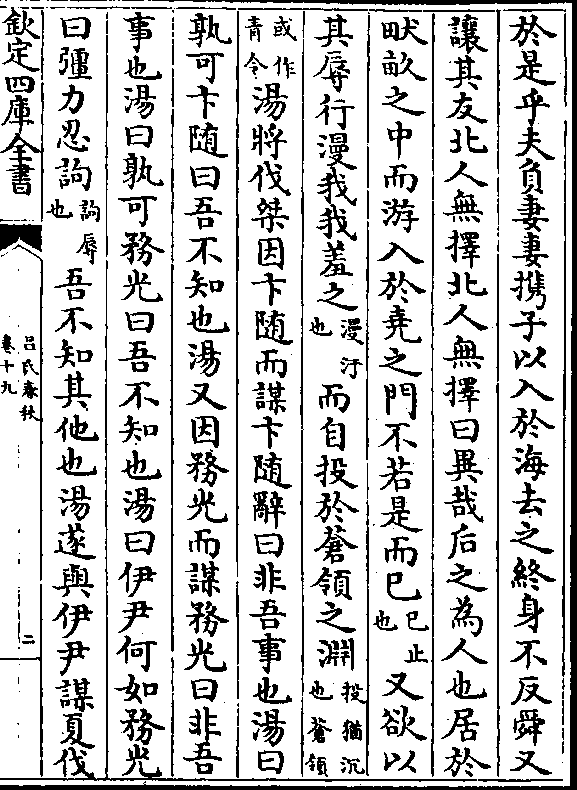 於是乎夫負妻妻携子以入於海去之終身不反舜又
讓其友北人無擇北人無擇曰異哉后之為人也居於
畎畝之中而游入於堯之門不若是而已已止也又欲以
其辱行漫我我羞之漫汙也而自投於蒼領之淵投猶沉也蒼領
或作青令湯將伐桀因卞随而謀卞随辭曰非吾事也湯曰
孰可卞随曰吾不知也湯又因務光而謀務光曰非吾
事也湯曰孰可務光曰吾不知也湯曰伊尹何如務光
曰彊力忍訽訽辱也吾不知其他也湯遂與伊尹謀夏伐
欽定四庫全書
吕氏春秋
卷十九
二